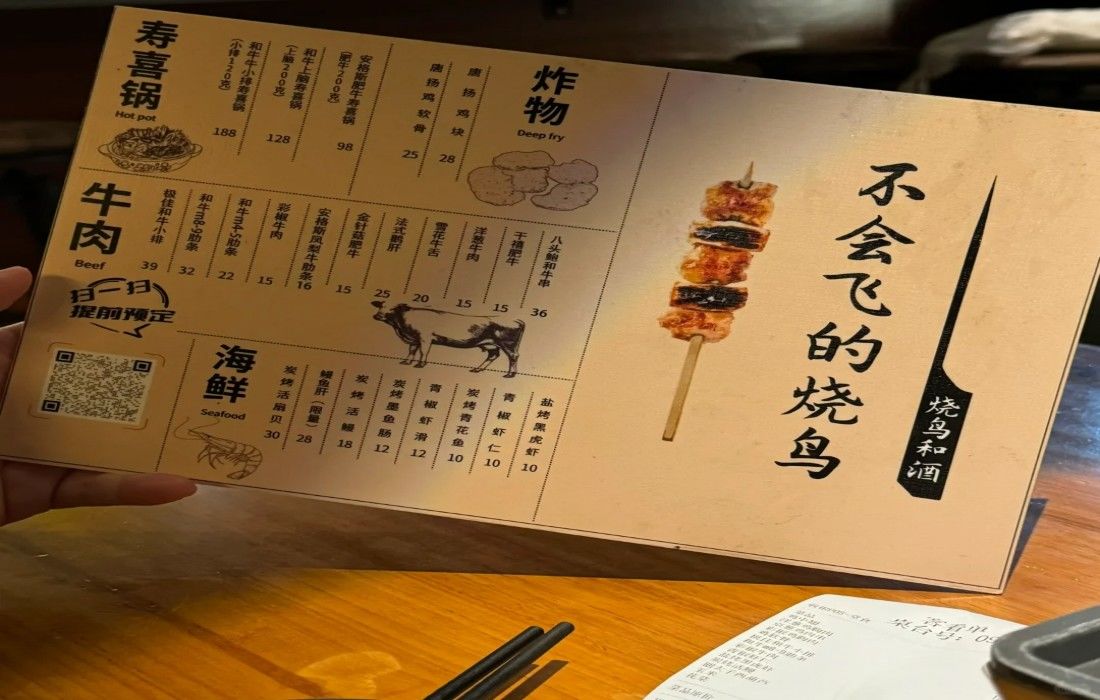 寿喜锅
Hot pot
和牛牛小排寿喜锅
(小排120克)
188
和牛上脑寿喜锅
(上脑200克)
128
安格斯肥牛寿喜锅
(肥牛200克)
98
炸物
Deep fry
唐扬鸡软骨
25
唐扬鸡块
28
牛肉
Beef
极佳和牛小排
39
和牛m8-9肋条
32
和牛m4-5肋条
22
彩椒牛肉
15
安格斯凤梨牛肋条
16
金针菇肥牛
15
法式鹅肝
25
雪花牛舌
20
洋葱牛肉
15
千禧肥牛
15
八头鲍和牛串
36
日一日
提前预定
海鲜
Seafood
炭烤活扇贝
30
鳗鱼肝(限量)
28
炭烤活鳗
18
炭烤墨鱼肠
12
青椒虾滑
12
炭烤青花鱼
10
青椒虾仁
10
盐烤黑虎虾
10
不会飞的烧鸟
烧鸟和酒
客看单
桌台号: 09
菜品